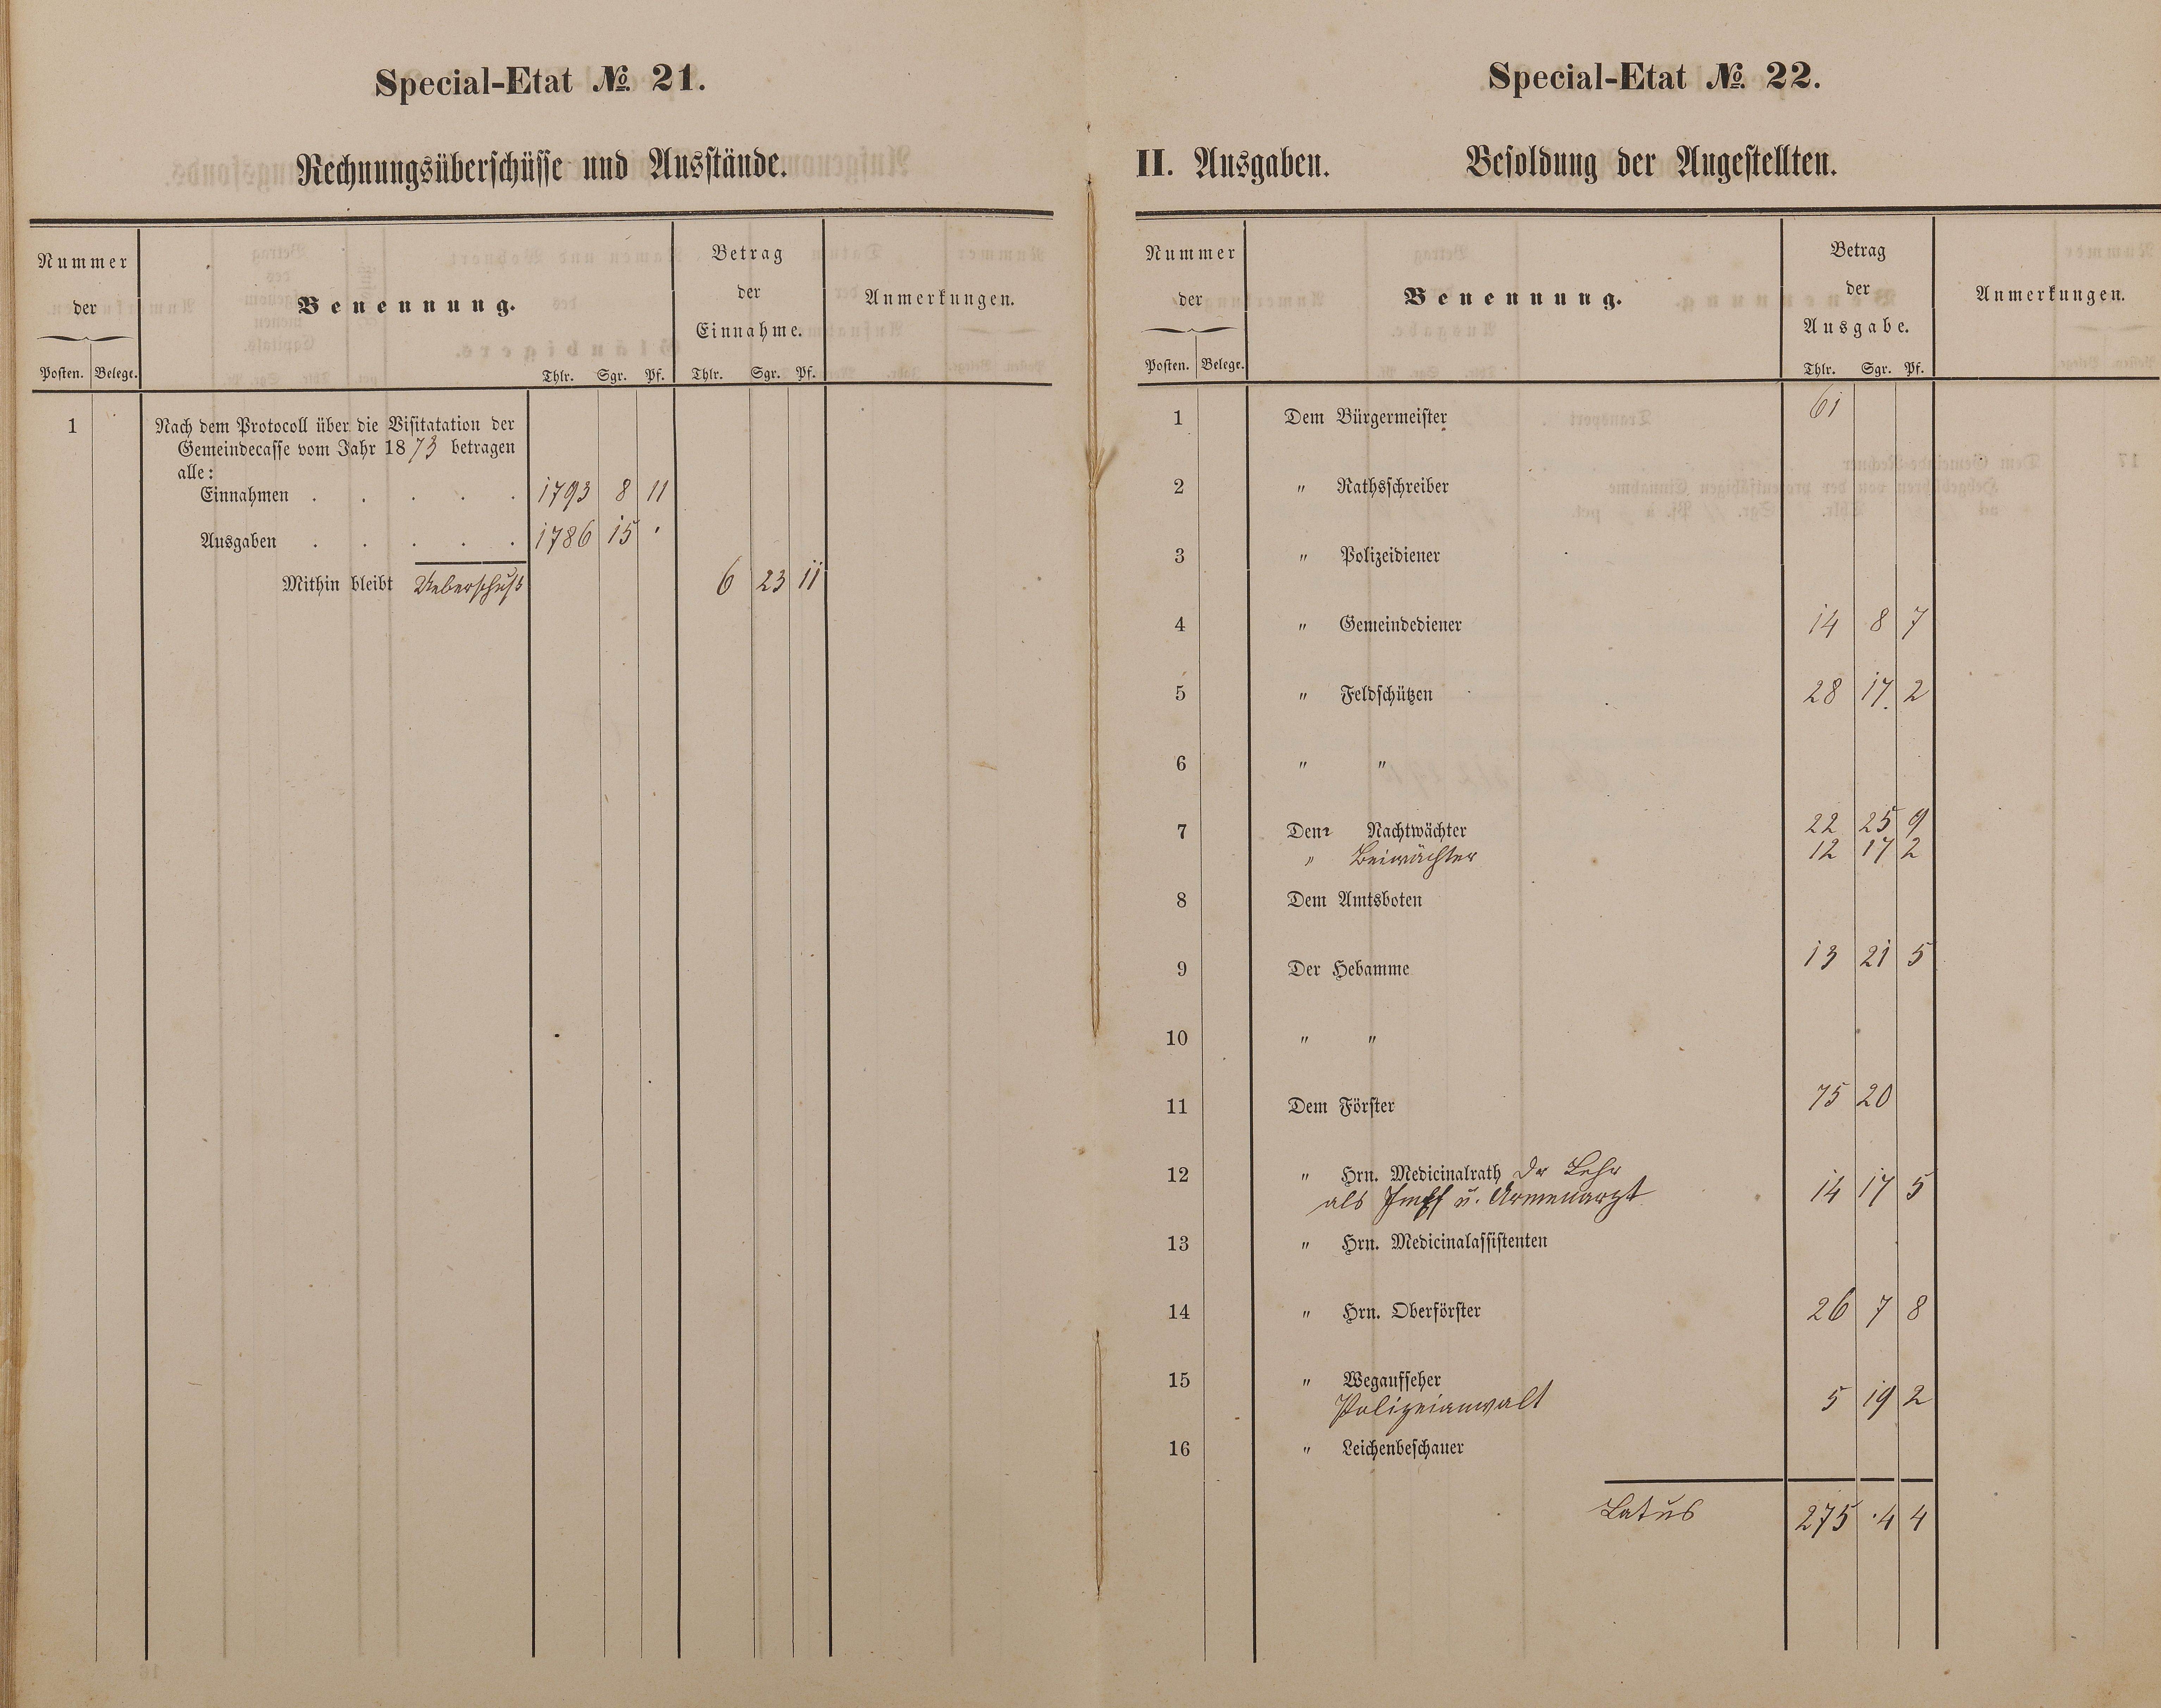 Special-Etat № 21.
Rechnungsüberschüsse und Ausstände.
Nummer
der
Posten. Belege.
Benennung.
Thlr. Sgr. Pf.
Betrag
der
Einnahme.
Thlr. Sgr. Pf.
Anmerkungen.
1 Nach dem Protocoll über die Visitatation der
Gemeindecasse vom Jahr 1873 betragen
alle:
Einnahmen . . . . . 1793 8 11
Ausgaben . . . . . 1786 15 .
Mithin bleibt Ueberschuß 6 23 11
Special-Etat № 22.
II. Ausgaben. Besoldung der Angestellten.
Nummer
der
Posten. Belege.
Benennung.
Betrag
der
Ausgabe.
Thlr. Sgr. Pf.
Anmerkungen.
1 Dem Bürgermeister 61
2 " Rathsschreiber
3 " Polizeidiener
4 " Gemeindediener 14 8 7
5 " Feldschützen 28 17 2
6 " "
7 Den Nachtwächter 22 25 9
" Beiwächter 12 17 2
8 Dem Amtsboten
9 Der Hebamme 13 21 5
10 " "
11 Dem Förster 75 20
12 " Hrn. Medicinalrath Dr Lehr
als Impf u. Armenarzt 14 17 5
13 " Hrn. Medicinalassistenten
14 " Hrn. Oberförster 26 7 8
15 " Wegaufseher
Polizeianwalt 5 19 2
16 " Leichenbeschauer
Latus 275 . 4 4